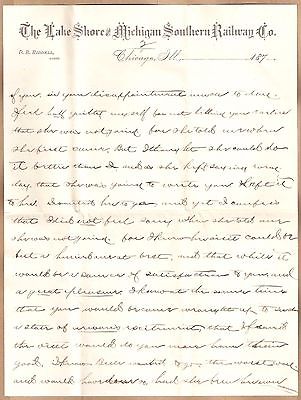 The Lake Shore & Michigan Southern Railway Co.
2
Chicago, Ill. 187
of you, in your disappointment
I feel half guilty myself for not telling you earlier
that she was not going for she told me when
she first came. But I thought she could do
it better than I and as she kept saying every
day, that she was going to write you I left it
to her. I omitted her to you and yet I confess
that I did not feel sorry when she told me
she was not going, for I know her visit could be
but a hurried one at best, and that while it
would be a source of satisfaction to you and
a great pleasure I know at the same time
that you would become wrought up to such
a state of nervous excitement that I feared
the visit would do you more harm than
good, I know
and would have been so had she been